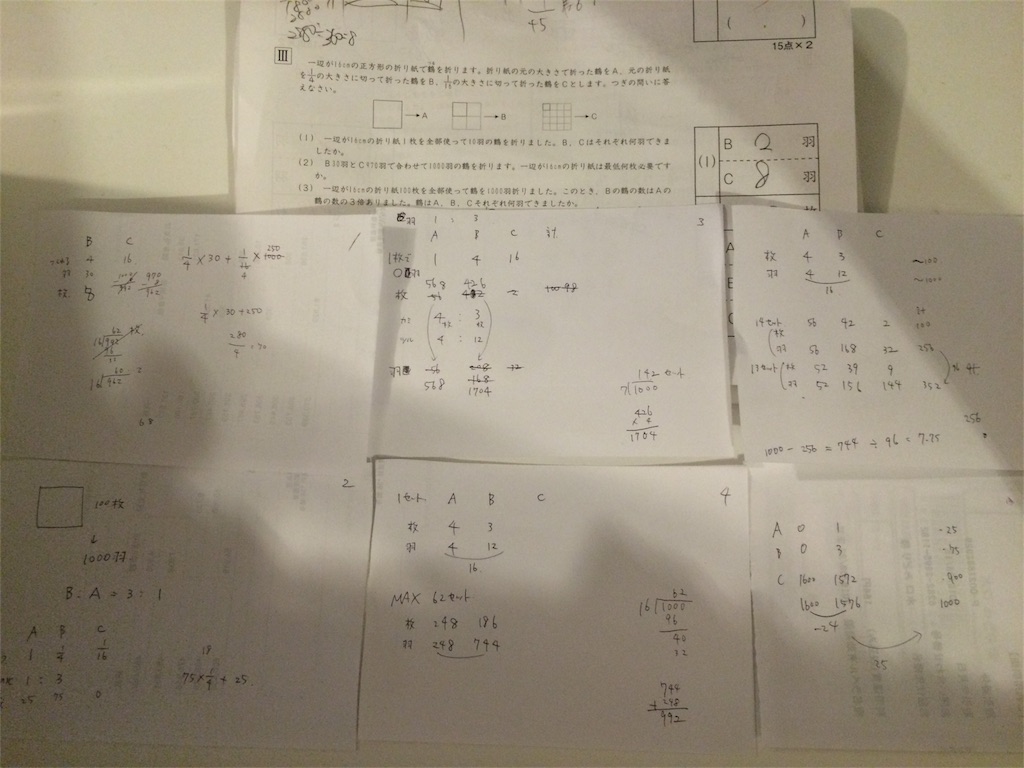 45
15点×2
Ⅲ
一辺が16cmの正方形の折り紙で鶴を折ります。折り紙の元の大きさで折った鶴をA、元の折り紙
を1/4の大きさに切って折った鶴をB、1/16の大きさに切って折った鶴をCとします。つぎの問いに答
えなさい。
→A
→B
→C
(1) 一辺が16cmの折り紙1枚を全部使って10羽の鶴を折りました。B、Cはそれぞれ何羽できま
したか。
(2) B30羽とC970羽で合わせて1000羽の鶴を折ります。一辺が16cmの折り紙は最低何枚必要です
か。
(3) 一辺が16cmの折り紙100枚を全部使って鶴を1000羽折りました。このとき、Bの鶴の数はAの
鶴の数の3倍ありました。鶴はA、B、Cそれぞれ何羽できましたか。
(1)
B 2 羽
C 8 羽
1
B C
4 16
羽 30
枚 8
1/4 × 30 +
1/4 × 30 + 250
280
62
60
16
962
68
3
羽 1 : 3
A B C 計
1 4 16
568 426
枚
4枚 : 3枚
4 : 12
羽
568 1704
142 セット
7 1000
426
× 4
1704
A B C
枚 4 3
羽 4 12
16
~100
~1000
計
100
14セット 枚 56 42 2
羽 56 168 32 256
13セット 枚 52 39 9
羽 52 156 144 352
96
256
1000 - 256 = 744 ÷ 96 = 7.75
2
100枚
↓
1000羽
B : A = 3 : 1
A B C
1 1/4 1/16
1 : 3
25 75 0
18
75×1/4 + 25
4
1セット A B C
枚 4 3
羽 4 12
16
MAX 62セット
枚 248 186
羽 248 744
62
16 1000
96
40
32
744
+ 248
992
A 0 1 25
B 0 3 75
C 1600 1572 900
1600 1576 1000
-24
25